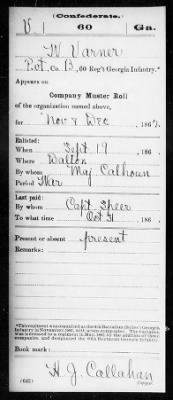 (Confederate.)
V. 60 Ga.
W. Varner
Pvt, Co. B, 60 Reg't Georgia Infantry.*
Appears on
Company Muster Roll
of the organization named above,
for Nov & Dec, 186
Enlisted:
When Sept 19, 186
Where Walton
By whom Maj Calhoun
Period War
Last paid:
By whom Capt. Sheer
To what time Oct 31, 186
Present or absent present
Remarks:
Book mark:
H. J. Callahan
(642) Copyist.